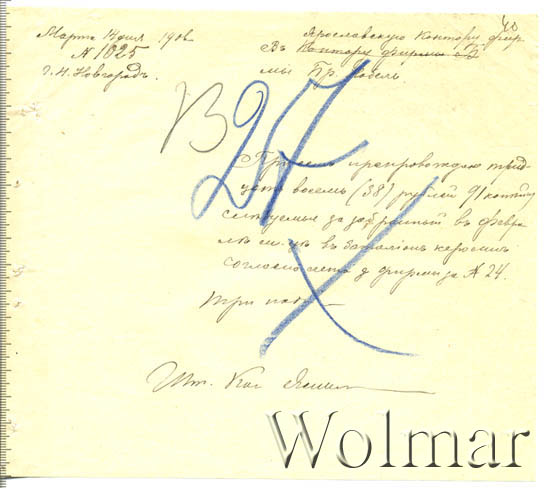 40
Марта 14 дня 1906
№ 1025
г. Н. Новгородъ.
Ярославскую Контору фир-
Въ Контору фирмы
мы Бр. Нобель
В 27
При семъ препровождаю трид-
цать восемь (38) рублей 91 копѣйку
слѣдуемыя за забранный въ февра
лѣ въ баталіонъ керосинъ
согласно счета фирмы за № 24.
Шт. Кап
Wolmar